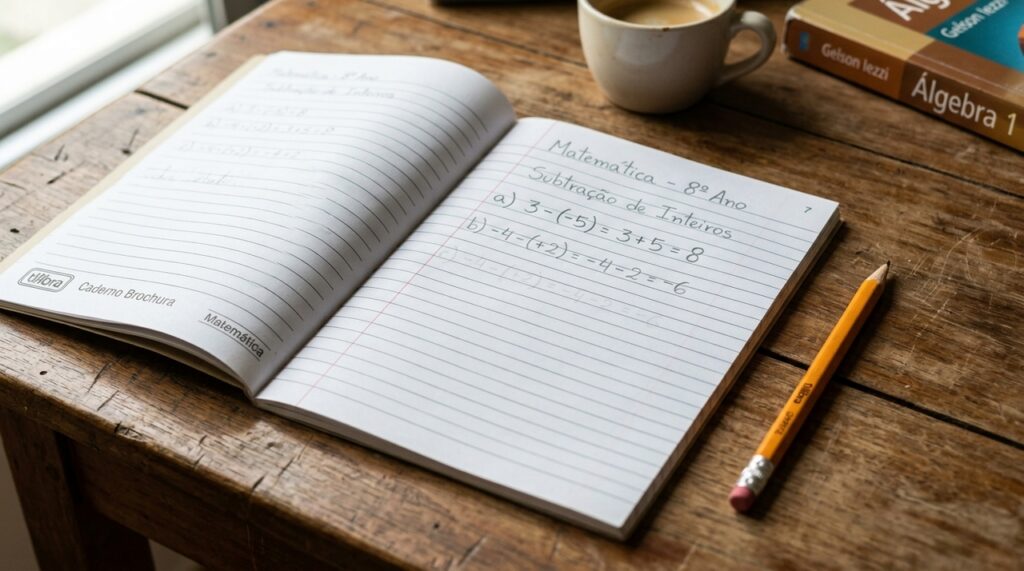 Matemática - 8º Ano
Subtração de Inteiros
tilibra
Caderno Brochura
Matemática
Matemática - 8º Ano
7
Subtração de Inteiros
a) 3 - (-5) = 3 + 5 = 8
b) -4 - (+2) = -4 - 2 = -6
Gelson Iezzi
Gelson Iezzi
Álgebra 1